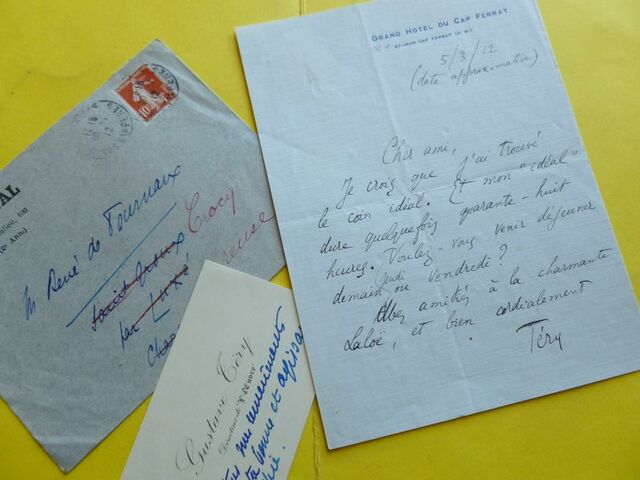 GRAND HOTEL DU CAP FERRAT
ST JEAN CAP FERRAT (A. M.)
5/3/12
(date approximative)
Cher ami,
Je crois que j'ai trouvé
le coin idéal. Et mon "idéal"
dure quelquefois quarante-huit
heures. Voulez-vous venir déjeuner
jeudi
demain ou vendredi ?
Mes amitiés à la charmante
Laloë, et bien cordialement
Téry
AL
100
M René de Fournoux
Crocq
reuse
par Luxé
Cha
10
Gustave Téry
Directeur de "L'Œuvre"
mes remerciements